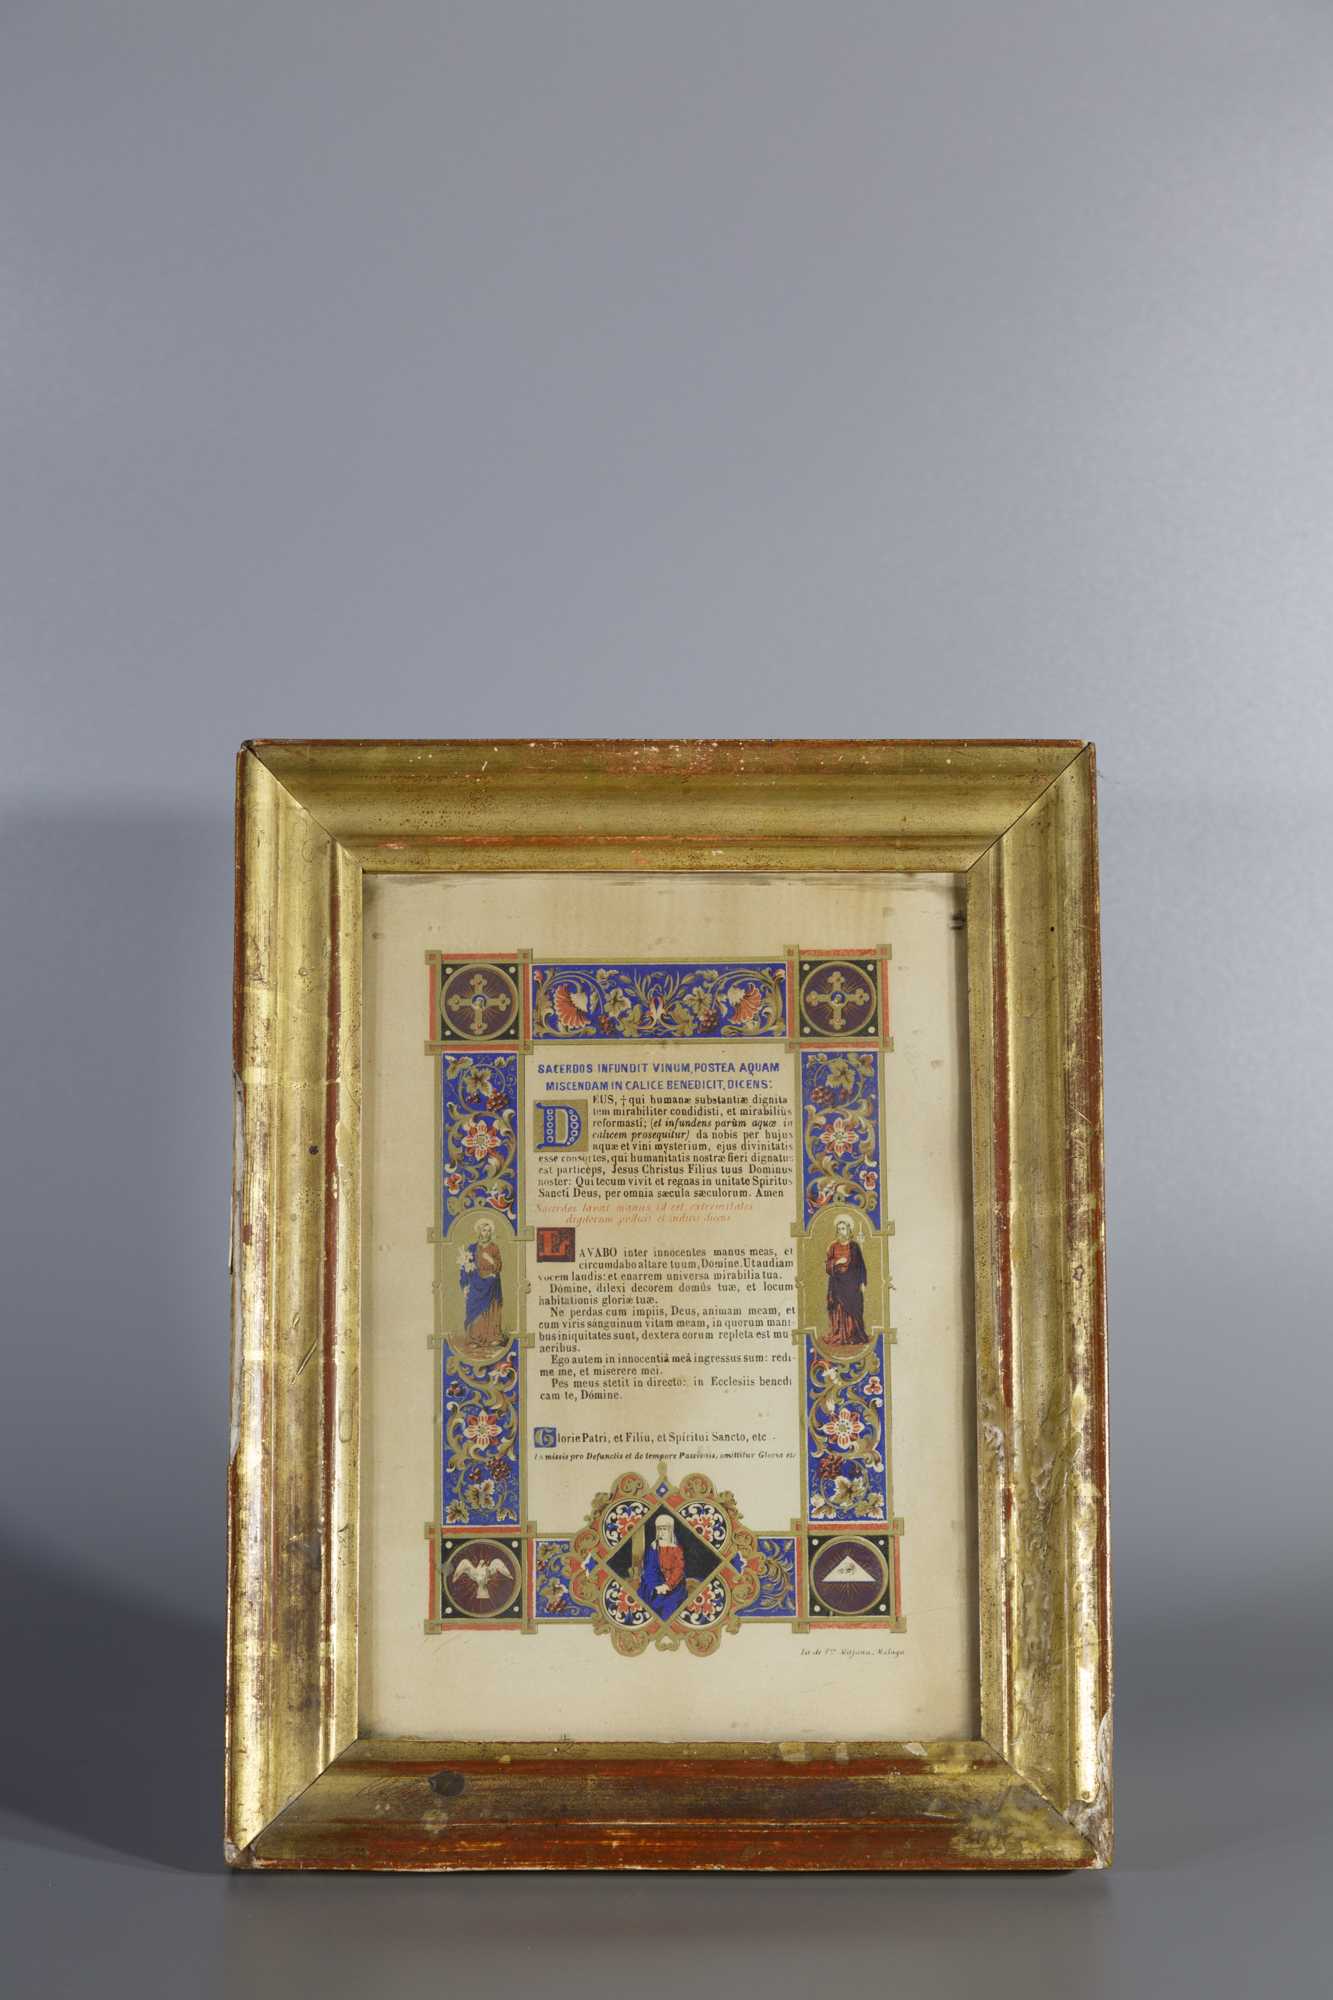 SACERDOS INFUNDIT VINUM, POSTEA AQUAM
MISCENDAM IN CALICE BENEDICIT, DICENS:
DEUS, † qui humanæ substantiæ dignita
tem mirabiliter condidisti, et mirabiliùs
reformasti; (et infundens parùm aquæ in
calicem prosequitur) da nobis per hujus
aquæ et vini mysterium, ejus divinitatis
esse consortes, qui humanitatis nostræ fieri dignatus
est particeps, Jesus Christus Filius tuus Dominus
noster: Qui tecum vivit et regnas in unitate Spiritus
Sancti Deus, per omnia sæcula sæculorum. Amen
Sacerdos lavat manus id est extremitates
digitorum pollicis et indicis dicens
LAVABO inter innocentes manus meas, et
circumdabo altare tuum, Domine. Ut audiam
vocem laudis: et enarrem universa mirabilia tua.
Dómine, dilexi decorem domûs tuæ, et locum
habitationis gloriæ tuæ.
Ne perdas cum impiis, Deus, animam meam, et
cum viris sánguinum vitam meam, in quorum mani-
bus iniquitates sunt, dextera eorum repleta est mu-
neribus.
Ego autem in innocentiâ meâ ingressus sum: redi-
me me, et miserere mei.
Pes meus stetit in directo: in Ecclesiis benedi
cam te, Dómine.
Glorie Patri, et Filiu, et Spiritui Sancto, etc.
In missis pro Defunctis et de tempore Passionis, omittitur Gloria etc
Lit de F.co Mitjana. Málaga.